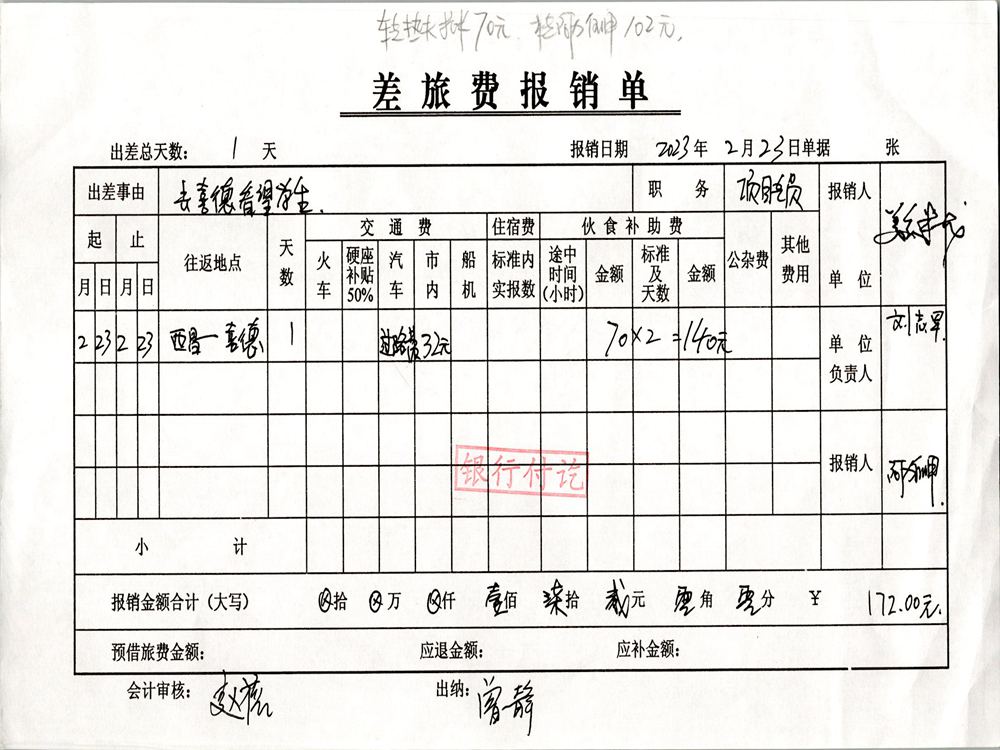 70元. 102元.
差旅费报销单
出差总天数: 1 天 报销日期 2023年 2月23日单据 张
出差事由 去喜德看望学生. 职务 项目专员 报销人
起 止 往返地点 天数 交通费 住宿费 伙食补助费 公杂费 其他费用 单位
月 日 月 日 火车 硬座补贴50% 汽车 市内 船机 标准内实报数 途中时间(小时) 金额 标准及天数 金额
2 23 2 23 西昌—喜德 1 过路费32元 70×2=140元 单位负责人 刘志军.
银行付讫 报销人
小计
报销金额合计(大写) ⊗拾 ⊗万 ⊗仟 壹佰 柒拾 贰元 零角 零分 ¥ 172.00元.
预借旅费金额: 应退金额: 应补金额:
会计审核: 出纳: 曾静